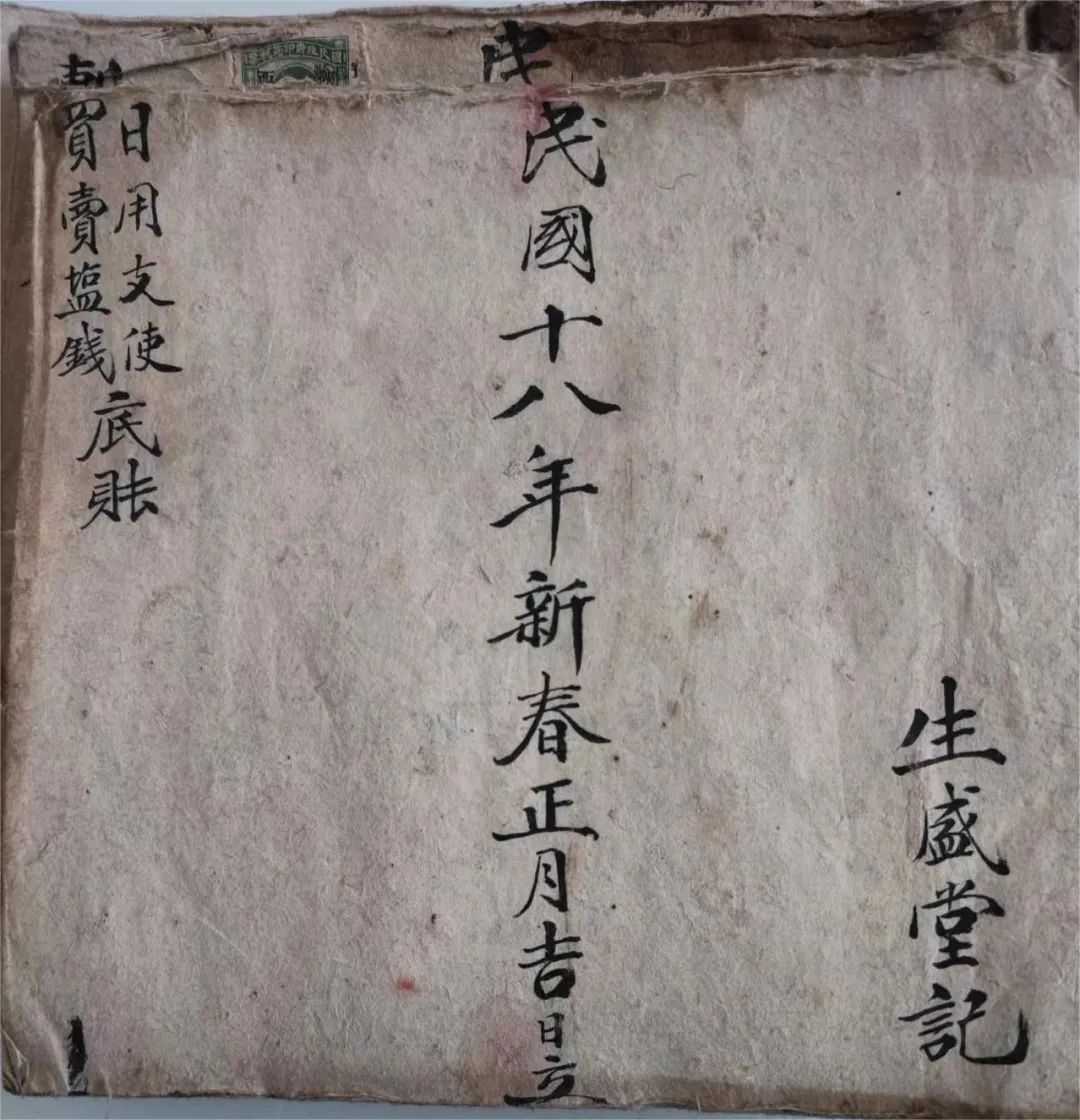 生盛堂記
民國十八年新春正月吉日立
日用支使
買賣塩銭
底賬